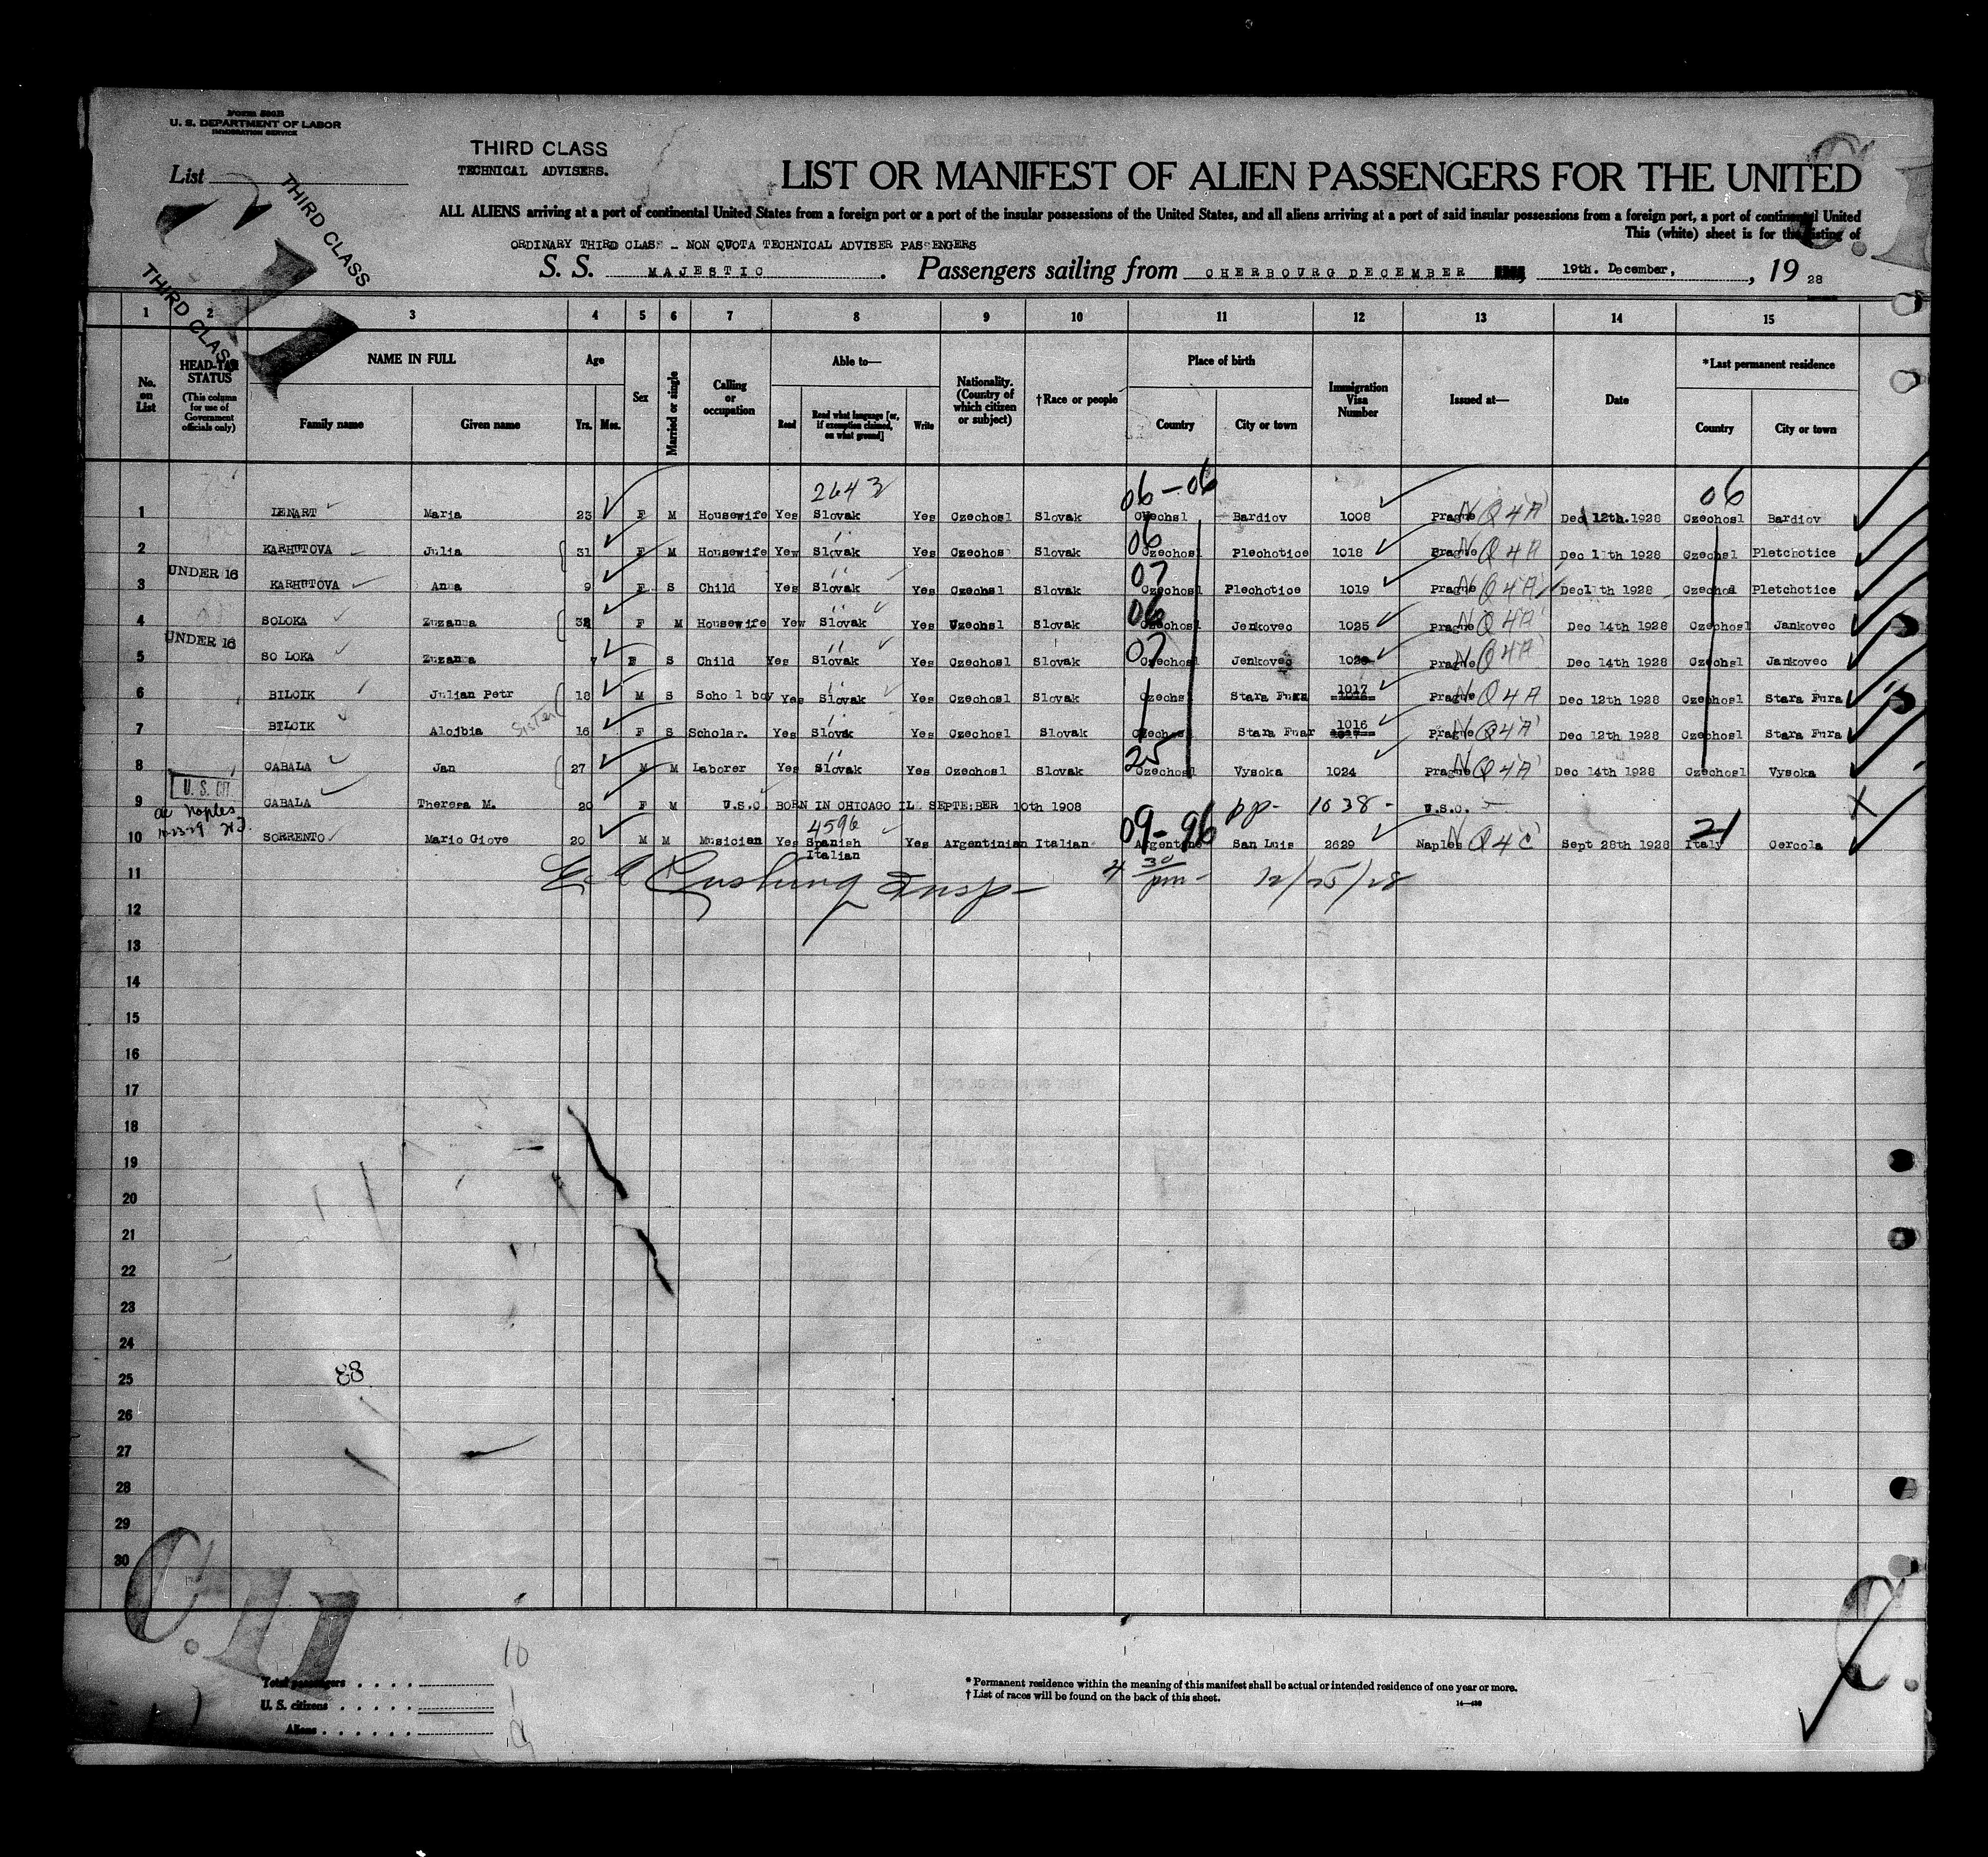 Form 500B
U. S. DEPARTMENT OF LABOR
IMMIGRATION SERVICE
List
THIRD CLASS
THIRD CLASS
THIRD CLASS
TECHNICAL ADVISERS.
LIST OR MANIFEST OF ALIEN PASSENGERS FOR THE UNITED
ALL ALIENS arriving at a port of continental United States from a foreign port or a port of the insular possessions of the United States, and all aliens arriving at a port of said insular possessions from a foreign port, a port of continental United
This (white) sheet is for the listing of
ORDINARY THIRD CLASS - NON QUOTA TECHNICAL ADVISER PASSENGERS
S. S. MAJESTIC. Passengers sailing from CHERBOURG DECEMBER, 19th. December, , 19 28
1 2 3 4 5 6 7 8 9 10 11 12 13 14 15
No. on List
HEAD-TAX STATUS (This column for use of Government officials only)
NAME IN FULL Family name Given name
Age Yrs. Mos.
Sex
Married or single
Calling or occupation
Able to— Read Read what language [or, if exemption claimed, on what ground] Write
Nationality. (Country of which citizen or subject)
†Race or people
Place of birth Country City or town
Immigration Visa Number
Issued at—
Date
*Last permanent residence Country City or town
2643 06-06 06
1 LENART Maria 23 F M Housewife Yes Slovak Yes Czechosl Slovak Czechsl Bardiov 1008 Prague NQ4A Dec 12th.1928 Czechosl Bardiov
2 KARHUTOVA Julia 31 F M Housewife Yew Slovak Yes Czechos Slovak 06 Czechos Plechotice 1018 Prague NQ4A Dec 11th 1928 Czechsl Pletchotice
UNDER 16
3 KARHUTOVA Anna 9 F S Child Yes Slovak Yes Czechsl Slovak 07 Czechosl Plechotice 1019 Prague NQ4A Dec1 th 1928 Czechos Pletchotice
4 SOLOKA Zuzanna F M Housewife Yew Slovak Yes Czechsl Slovak 06 Czechosl Jenkovec 1025 Prague NQ4A Dec 14th 1928 Czechosl Jankovec
UNDER 16
5 SO LOKA Zuzanna 7 F S Child Yes Slovak Yes Czechosl Slovak 07 Czechosl Jenkovec Prague NQ4A Dec 14th 1928 Czechosl Jankovec
6 BILCIK Julian Petr 18 M S Scho l boy Yes Slovak Yes Czechosl Slovak Czechs Stara Fura 1017 Prague NQ4A Dec 12th 1928 Czechosl Stara Fura
Sister
7 BILCIK Alojbia 16 F S Scholar. Yes Slovak Yes Czechosl Slovak Czechosl Stara Fuar 1016 Prague NQ4A Dec 12th 1928 Czechosl Stara Fura
8 CABALA Jan 27 M M Laborer Yes Slovak Yes Czechosl Slovak 25 Czechosl Vysoka 1024 Prague NQ4A Dec 14th 1928 Czechosl Vysoka
U. S. CIT
9 CABALA Theresa M. 20 F M U.S.C BORN IN CHICAGO IL SEPTEMBER 10th 1908 pp- 1038- U.S.C.
Naples
10-23-29
10 SORRENTO Mario Giove 20 M M Musician Yes 4596 Spanish Italian Yes Argentinian Italian 09-96 Argentine San Luis 2629 Naples NQ4C Sept 28th 1928 21 Italy Cercola
Cushing Insp- 4 30 pm- 12/25/28
11
12
13
14
15
16
17
18
19
20
21
22
23
24
25
26
27
28
29
30
83
C. II
Total passengers 10
U. S. citizens 1
Aliens 9
* Permanent residence within the meaning of this manifest shall be actual or intended residence of one year or more.
† List of races will be found on the back of this sheet.
14—430